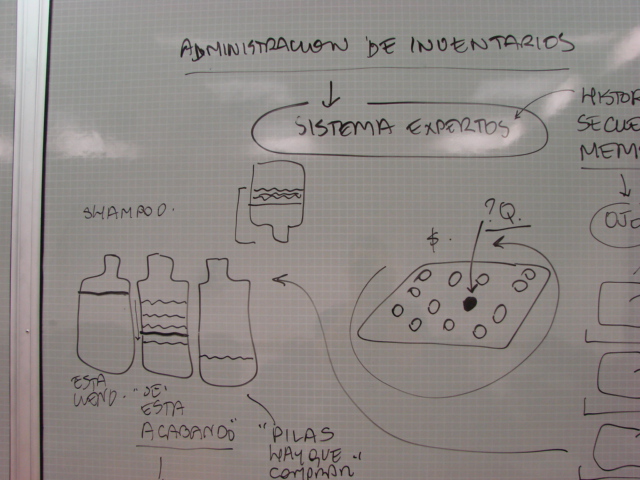 ADMINISTRACION DE INVENTARIOS
SISTEMA EXPERTOS
HISTOR
SECUE
MEM
OJO
SHAMPOO.
?Q.
$.
ESTA
LLENO.
"SE
ESTA
ACABANDO"
"PILAS
HAY QUE
COMPRAR"